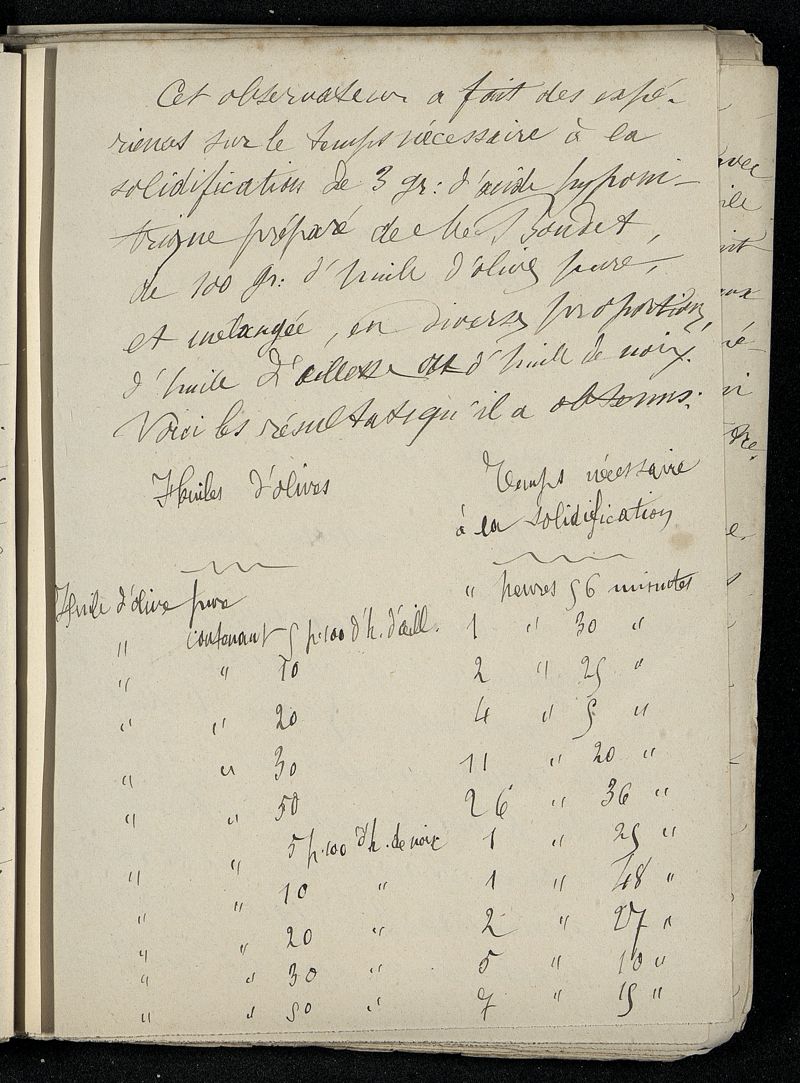 Cet observateur a fait des expé-
riences sur le temps nécessaire à la
solidification de 3 gr: d'acide hyponi-
trique préparé de Mr Boudet,
de 100 gr: d'huile d'olive pure,
et mélangée, en diverses proportions,
d'huile d'œillette et d'huile de noix.
Voici les résultats qu'il a obtenus:
Huiles d'olives
Temps nécessaire
à la solidification
Huile d'olive pure " heures 56 minutes
" contenant 5 p. 100 d'h. d'œill. 1 " 30 "
" " 10 2 " 25 "
" " 20 4 " 5 "
" " 30 11 " 20 "
" " 50 26 " 36 "
" 5 p. 100 d'h. de noix 1 " 25 "
" " 10 " 1 " 48 "
" " 20 " 2 " 27 "
" " 30 " 5 " 10 "
" " 50 " 7 " 15 "